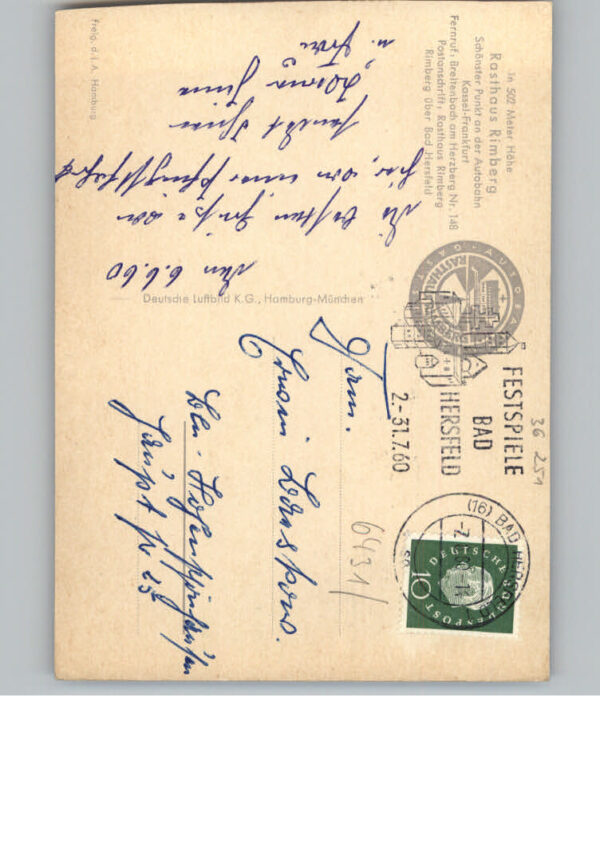 In 502 Meter Höhe
Rasthaus Rimberg
Schönster Punkt an der Autobahn
Kassel-Frankfurt
Fernruf: Breitenbach am Herzberg Nr. 148
Postanschrift: Rasthaus Rimberg
Rimberg über Bad Hersfeld
den 6.6.60
die besten Grüße von
hier, von einer Pfingstfahrt
sendet
u. Frau
Freig. d. L.A. Hamburg
Deutsche Luftbild K.G., Hamburg-München
RASTHAUS
FESTSPIELE
BAD
HERSFELD
2.-31.7.60
36 251
(16) BAD HERSFELD
DEUTSCHE BUNDESPOST
10
Fam.
Erwin
Bln.-Hohenschönhausen
6431/